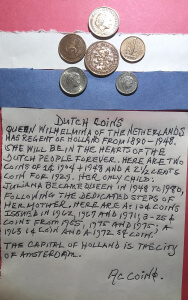 DUTCH COINS
QUEEN WILHELMINA OF THE NETHERLANDS
WAS REGENT OF HOLLAND FROM 1890-1948.
SHE WILL BE IN THE HEARTS OF THE
DUTCH PEOPLE FOREVER. HERE ARE TWO
COINS OF 1¢ 1904 & 1943 AND A 2 1/2 CENTS
COIN FOR 1929. HER ONLY CHILD:
JULIANA BECAME QUEEN IN 1948 TO 1980,
FOLLOWING THE DEDICATED STEPS OF
HER MOTHER. HERE ARE AS 1¢ COINS
ISSUED IN 1962, 1967 AND 1971; 3-25¢
COINS FROM 1965, 1975 AND 1972; A
1963 1¢ COIN AND A 1972 5¢ COIN.
THE CAPITAL OF HOLLAND IS THE CITY
OF AMSTERDAM.
AC COINS.